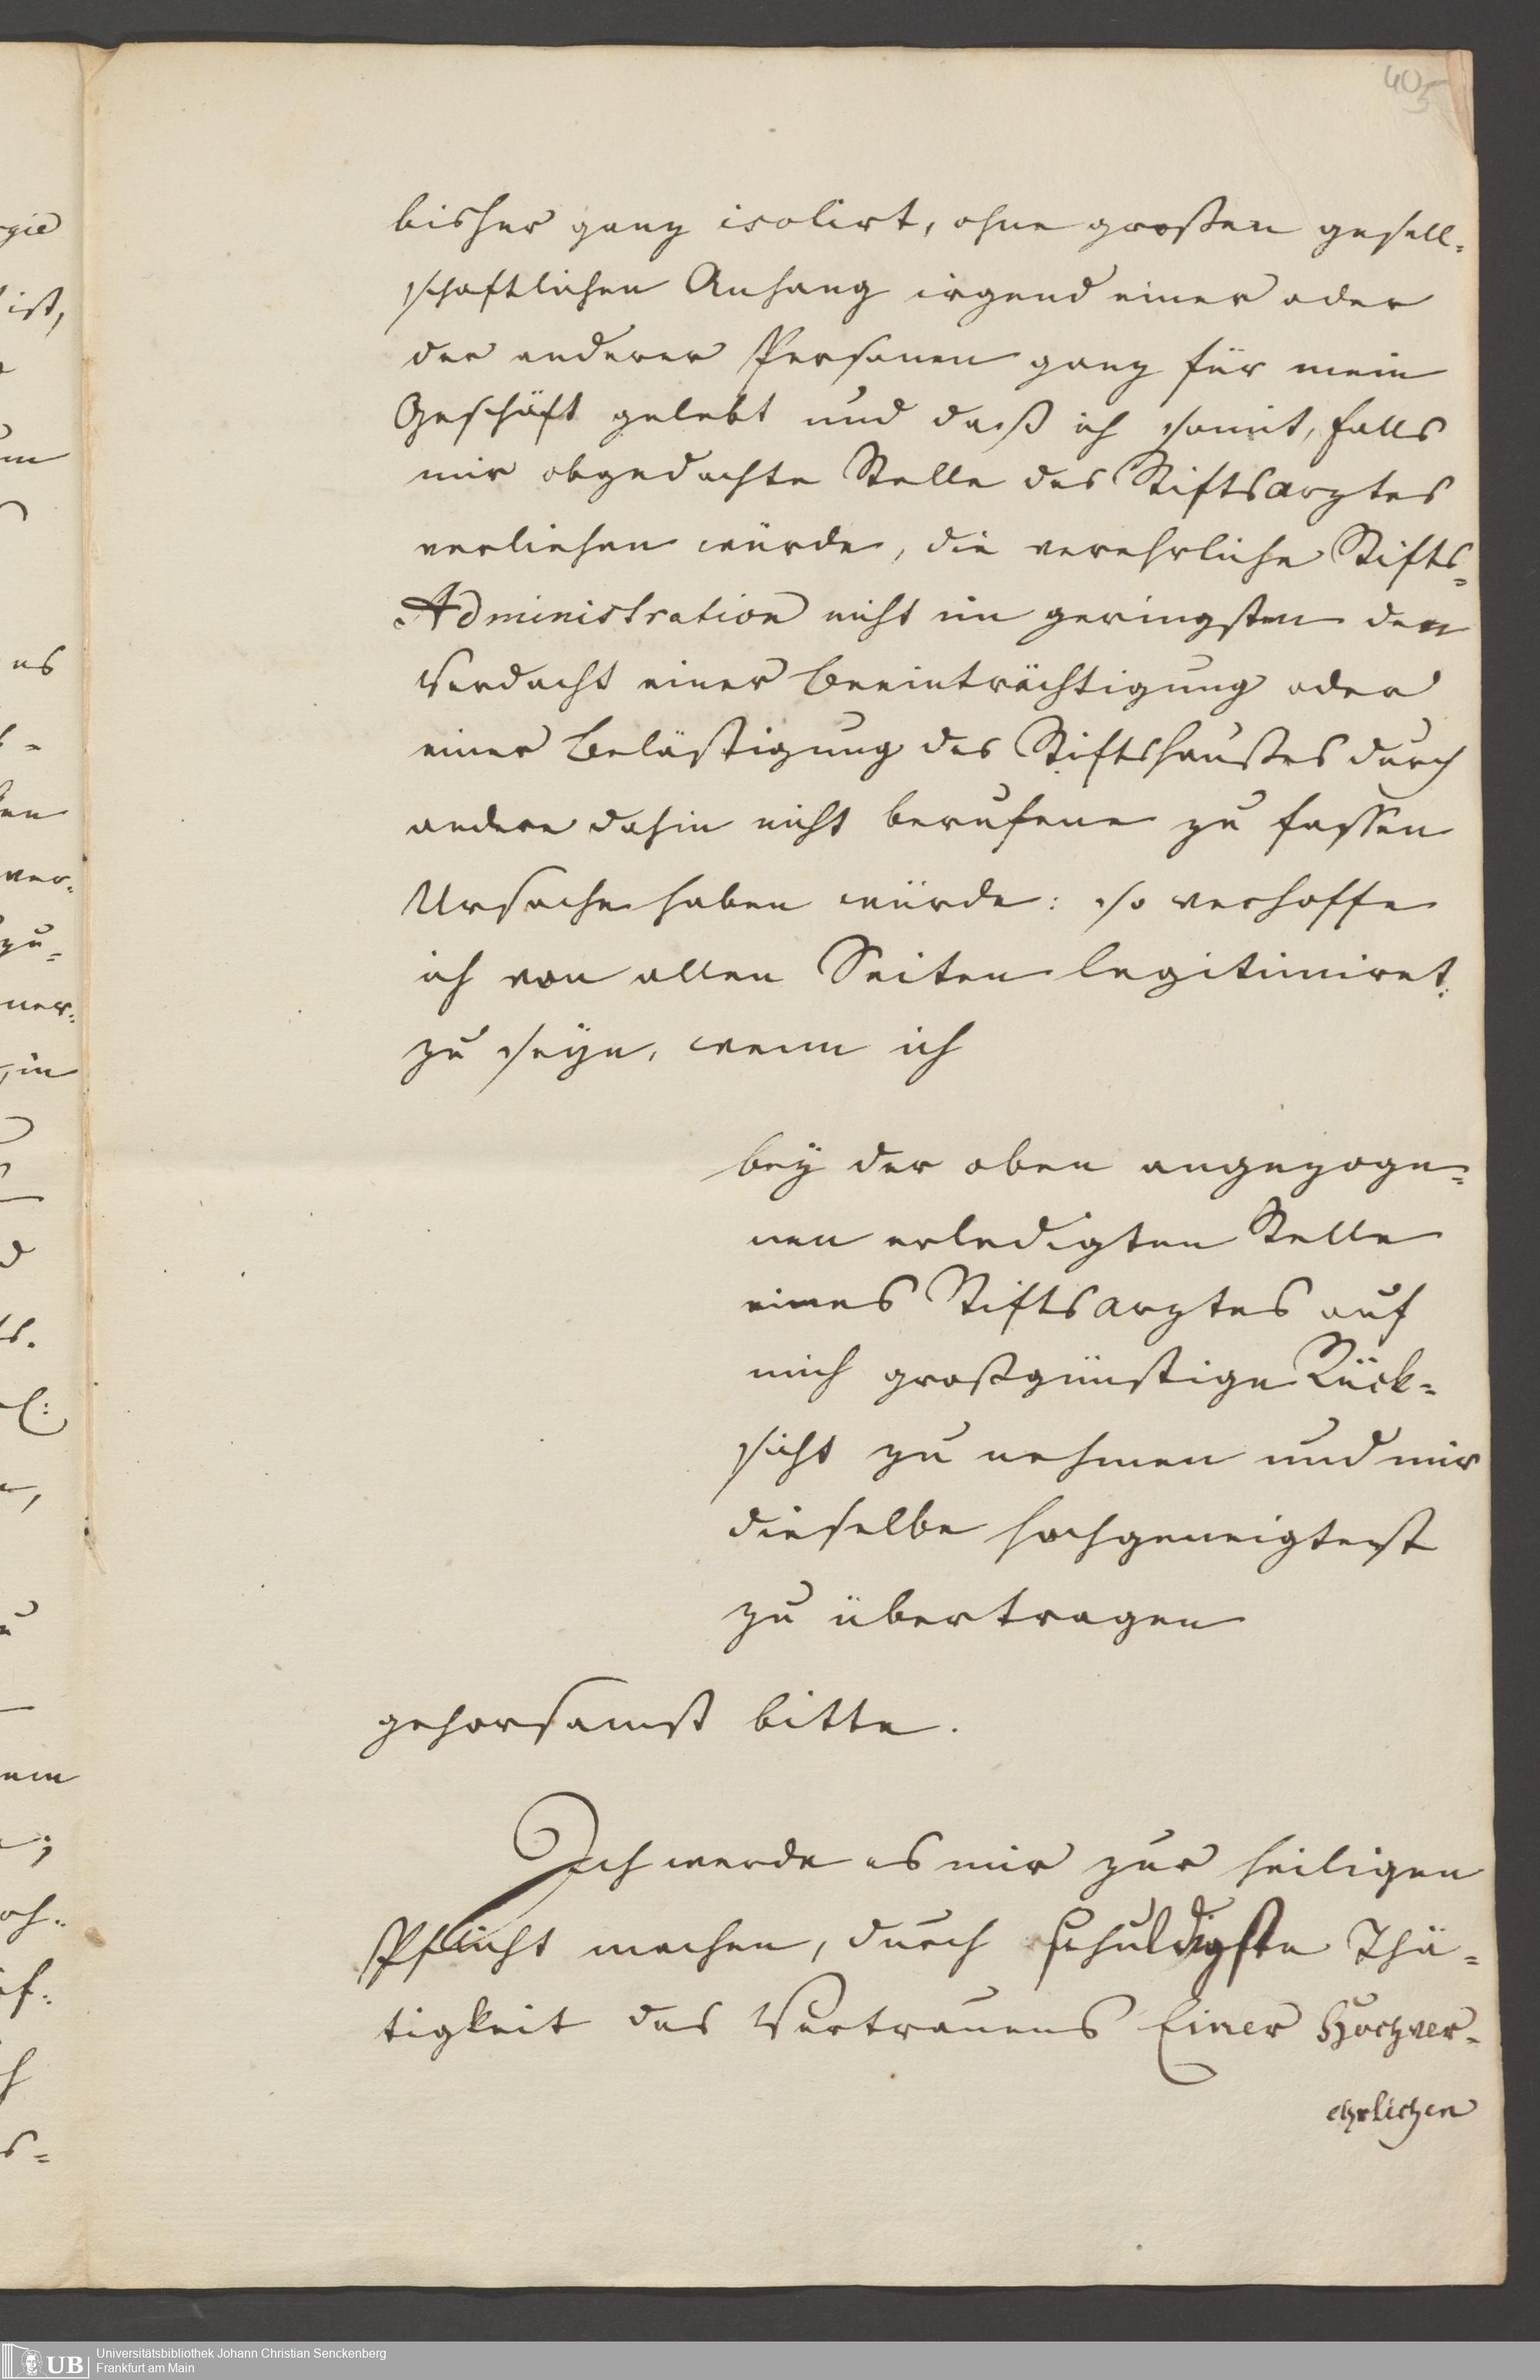 405
bisher ganz isolirt, ohne großen gesell-
schaftlichen Anhang irgend einer oder
der anderer Personen ganz für mein
Geschäft gelebt und daß ich somit, falls
mir obgedachte Stelle des Stiftsarztes
verliehen würde, die verehrliche Stifts-
Administration nicht im geringsten den
Verdacht einer Beeinträchtigung oder
einer Belästigung des Stiftshaußes durch
andere dahin nicht berufene zu fassen
Ursache haben würde: so verhoffe
ich von allen Seiten legitimiret
zu seyn, wenn ich
bey der oben angezoge-
nen erledigten Stelle
eines Stiftsarztes auf
mich großgünstige Rück-
sicht zu nehmen und mir
dieselbe hochgeneigtest
zu übertragen
gehorsamst bitte.
Ich werde es mir zur heiligen
Pflicht machen, durch schuldigste Thä-
tigkeit das Vertrauens Einer Hochver-
ehrlichen
gie
ist,
es
ver-
zu-
ner-
UB Universitätsbibliothek Johann Christian Senckenberg
Frankfurt am Main